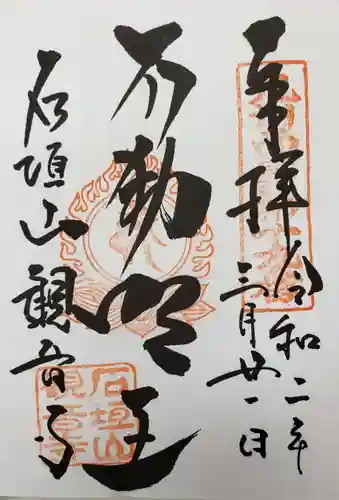 奉拝
令和二年
三月廿一日
不動明王
石垣山観音寺
石垣山
観音寺